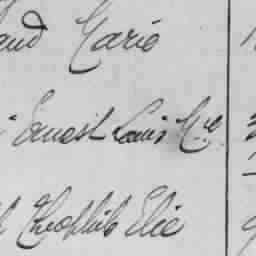 and Marie
Ernest Louis Mie
Théophile Elie